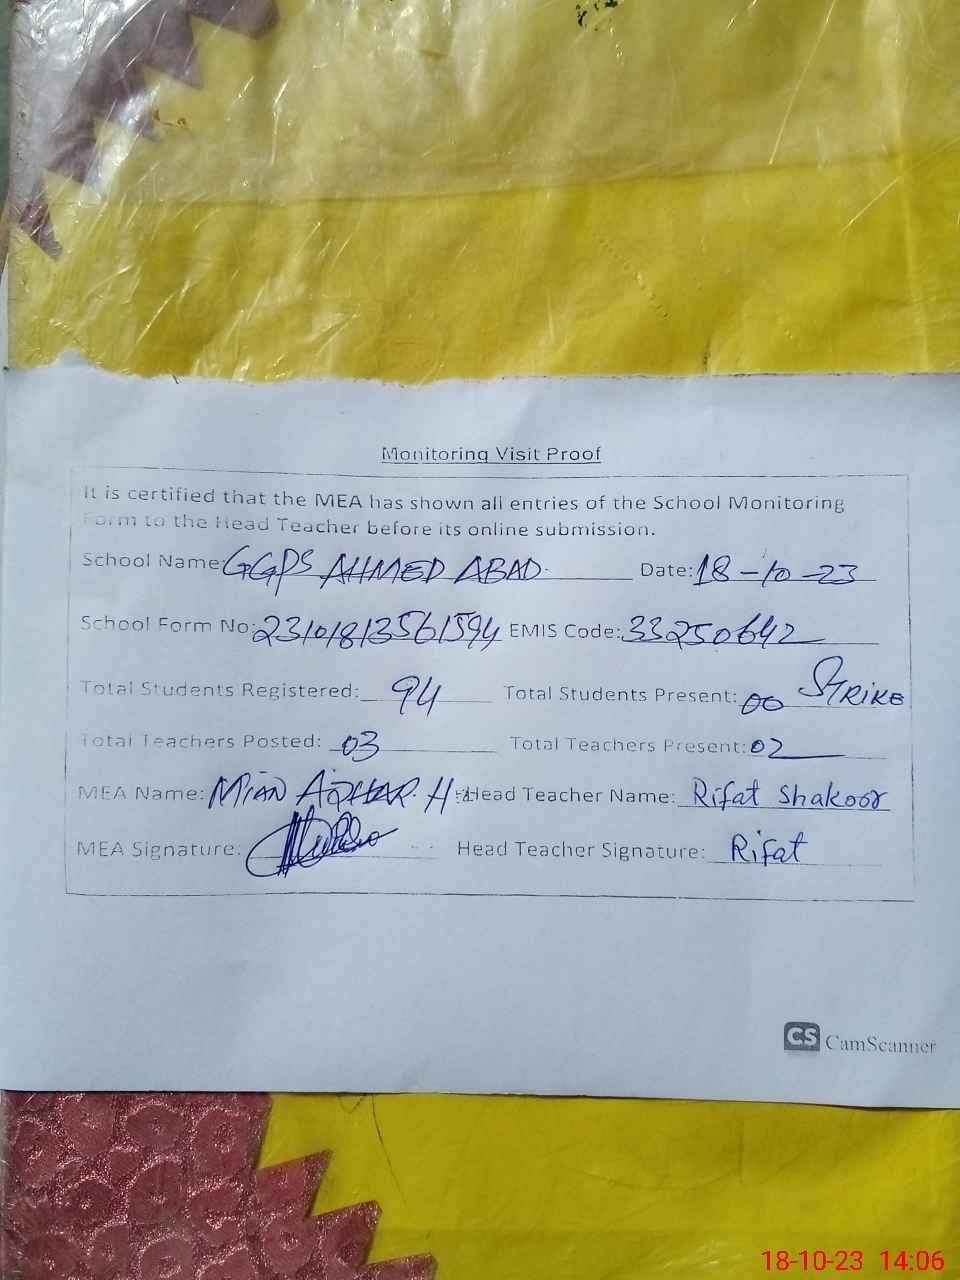 Monitoring Visit Proof
It is certified that the MEA has shown all entries of the School Monitoring
Form to the Head Teacher before its online submission.
School Name: GGPS AHMED ABAD. Date: 18-10-23
School Form No: 23101813561594 EMIS Code: 33250642
Total Students Registered: 94 Total Students Present: 00 STRIKE
Total Teachers Posted: 03 Total Teachers Present: 02
MEA Name: MIAN AZHAR. H Head Teacher Name: Rifat Shakoor
MEA Signature: Head Teacher Signature: Rifat
CS CamScanner
18-10-23 14:06